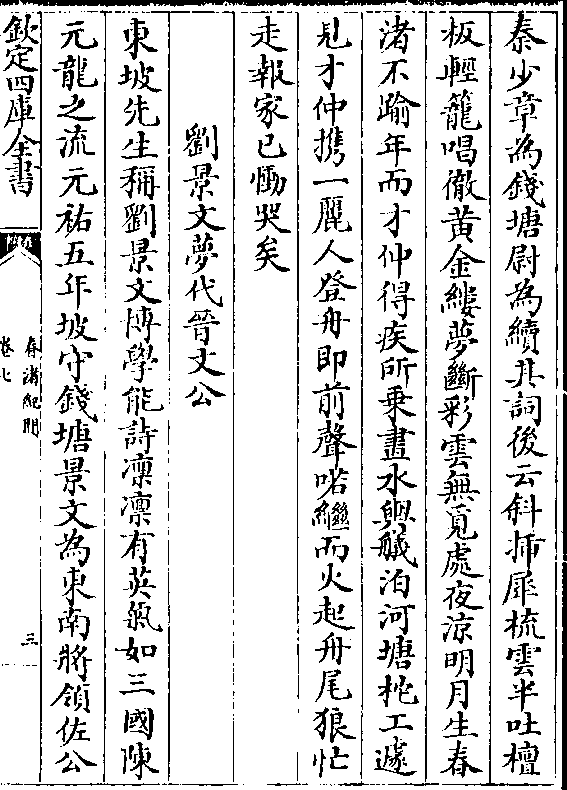 秦少章為錢塘尉為續其詞後云斜插犀梳雲半吐檀
板輕籠唱徹黄金縷夢斷彩雲無覓處夜涼明月生春
渚不踰年而才仲得疾所乗畫水輿艤泊河塘柁工遽
見才仲携一麗人登舟即前聲喏繼而火起舟尾狼忙
走報家已慟哭矣
劉景文夢代晉文公
東坡先生稱劉景文博學能詩凜凜有英氣如三國陳
元龍之流元祐五年坡守錢塘景文為東南將領佐公
欽定四庫全書
春渚紀聞
卷七
三